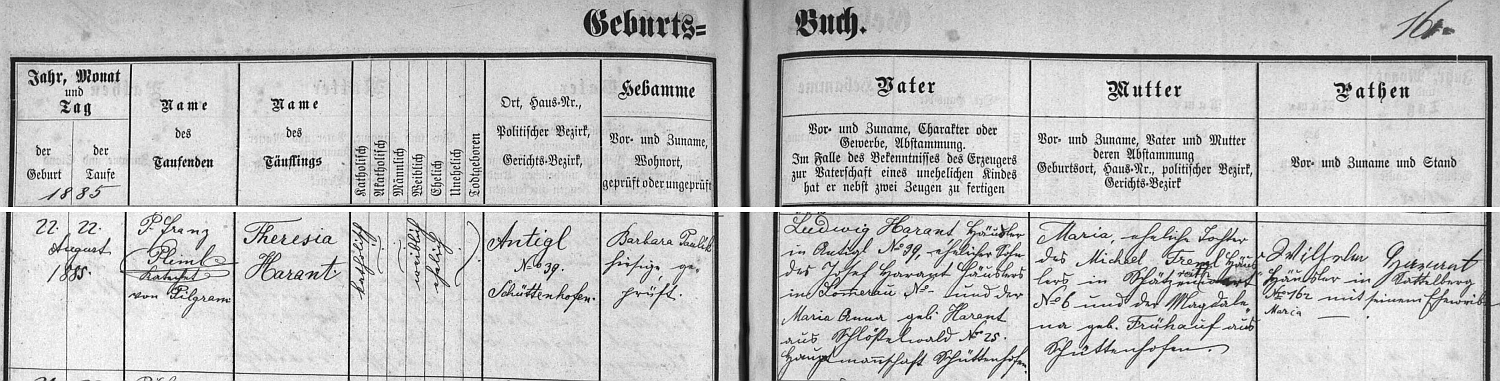 Geburts=
Buch.
161.
Jahr, Monat
und
Tag
der
Geburt
der
Taufe
1885
Name
des
Taufenden
Name
des
Täuflings
Katholisch
Akatholisch
Männlich
Weiblich
Ehelich
Unehelich
Todtgeboren
Ort, Haus-Nr.,
Politischer Bezirk,
Gerichts-Bezirk,
Hebamme
Vor- und Zuname,
Wohnort,
geprüft oder ungeprüft
Vater
Vor- und Zuname, Charakter oder
Gewerbe, Abstammung.
Im Falle des Bekenntnisses des Erzeugers
zur Vaterschaft eines unehelichen Kindes
hat er nebst zwei Zeugen zu fertigen
Mutter
Vor- und Zuname, Vater und Mutter
deren Abstammung
Geburtsort, Haus-Nr., politischer Bezirk,
Gerichts-Bezirk
Pathen
Vor- und Zuname und Stand
22. 22.
August
1885
P. Franz
Pleml
Katechet
von Pilgram
Theresia
Harant
katholisch
weiblich
ehelich
Antigl
No 39.
Schüttenhofen.
Barbara
hiesige, ge-
prüft.
Ludwig Harant Häusler
in Antigl No 39, ehelicher Sohn
des Josef Harant Häuslers
in No - und der
Maria Anna geb. Harant
aus Schlösselwald No 25.
Hauptmannschaft Schüttenhofen.
Maria, eheliche Tochter
des Michael Häus-
lers in
No 6 und der Magdale-
na geb. Frühauf aus
Schüttenhofen.
Wilhelm Harant
Häusler in Sattelberg
No 162 mit seinem Eheweibe
Maria